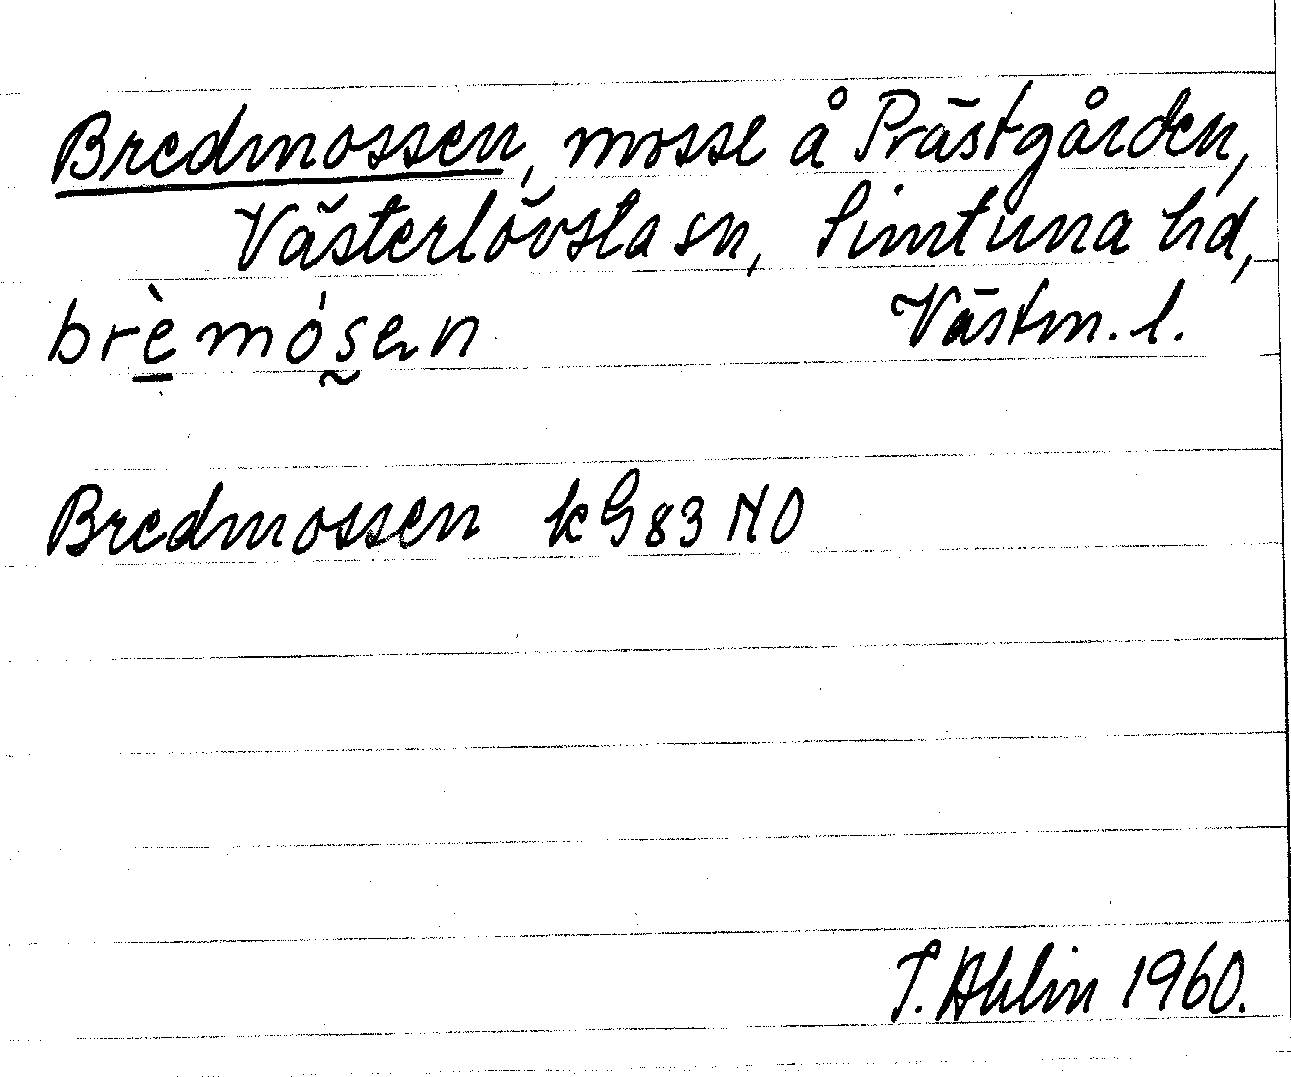 Bredmossen, mosse å Prästgården,
Västerlövsta sn, Simtuna hd,
brèmósen Västm. l.
Bredmossen kG 83 NO
T. Ahlin 1960.